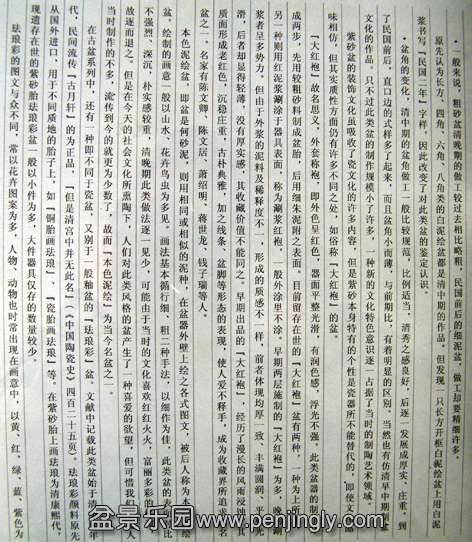 ·一般来说，粗砂盆清晚期的做工较过去相比略粗，民国前后的细泥盆，做工却要精细许多。
原先认为长方、四角、六角、八角类的白泥绘盆都是清中期的作品，但发现一只长方开框白泥绘盆上用白泥
浆书写「民国一年」字样，因此改变了对此类盆的鉴定认识。
·盆角的变化，清中期的盆角做一般比较规范，比例适当，清秀之感良好，后逐一发展成厚实、庄重，到
了民国前后，直口边的式样多了起来，而且盆角小而薄，与前期比，有着明显的区别，当然也有仿清早中期盆
文化的作品，只不过此类盆的制作规模小了许多，一种新的文化特色意识逐占据了当时的制陶艺术领域。
紫砂盆的装饰文化虽吸收了瓷文化的许多内容，但是紫砂本身特有的个性是瓷器所不能替代的，即使文化
味相仿，但其实质性方面仍有许多不同之处，如俗称「大红袍」的盆。
「大红袍」故名思义，外套称袍，即外色呈红色，器面平整光滑，有润色感，浮光不强。此类盆器的制
成两步，先用较粗砂料制成盆胎，后用细朱泥附之表面，目前留存在世的「大红袍」盆有两种，一种为上
另一种则用红泥浆涮涂于器具表面，称为涮浆红袍，一般外涂里不涂。早期两层施制的「大红袍」为多，晚期涮
浆者呈多势，但由于外浆的泥料及稀释度不一，形成的质感不一样，前者体现均厚一致，丰满圆润，平光
滑，后者却显得轻薄，没有厚实感，其收藏价值不能同之。早期出品的「大红袍」，经历了漫长的风雨浸蚀，其
质面形成老红色，沉稳庄重，古朴典雅，加之线条、盆脚等形态的表现，使人爱不释手，成为收藏界所追求的名
盆之一，名家有陈文卿、陈文居、萧绍明、蒋世龙、钱子瑞等人。
本色泥绘盆，即盆是何砂泥，则用相同或相似的泥种，在盆器外壁上绘之各式图文，被后人称为本色泥绘
盆，绘制的画意一般以山水、花卉鸟虫为多见，画法基本循行细、粗二种手法，以细作为佳，此类盆的表现
不强烈，深沉，朴实感较重，清晚期此类做法逐一见少，可能由于当时的文化喜欢红红火火，富丽多彩的
故逐而退之，但是在今天的社会文化所熏陶下，人们对此类风格的盆产生了一种喜爱的欲望，但可惜
当时制作的不多，流传到今的就更为少数了，故而「本色泥绘」为当今名盆之一。
在古盆系列中，还有一种即不同于瓷盆，又别于一般釉盆的「珐琅彩」盆，文献中记载此类盆始于清
代，民间流传「古月轩」的为正品，「但是清宫中并无此名」（《中国陶瓷史》四百二十五页）。珐琅彩颜料原先
从国外进口，用于不同质地的胎子上，如「铜胎画珐琅」、「瓷胎画珐琅」等。在紫砂胎上画珐琅为清康熙代，
现遗存在世的紫砂胎珐琅彩盆一般以小件为多，大件器具仅存的数量较少。
珐琅彩的图文与众不同，常以花卉图案为多，人物、动物也时常出现在画意中，以黄、红、绿、蓝、紫色为
盆景乐园www.penjingly.com